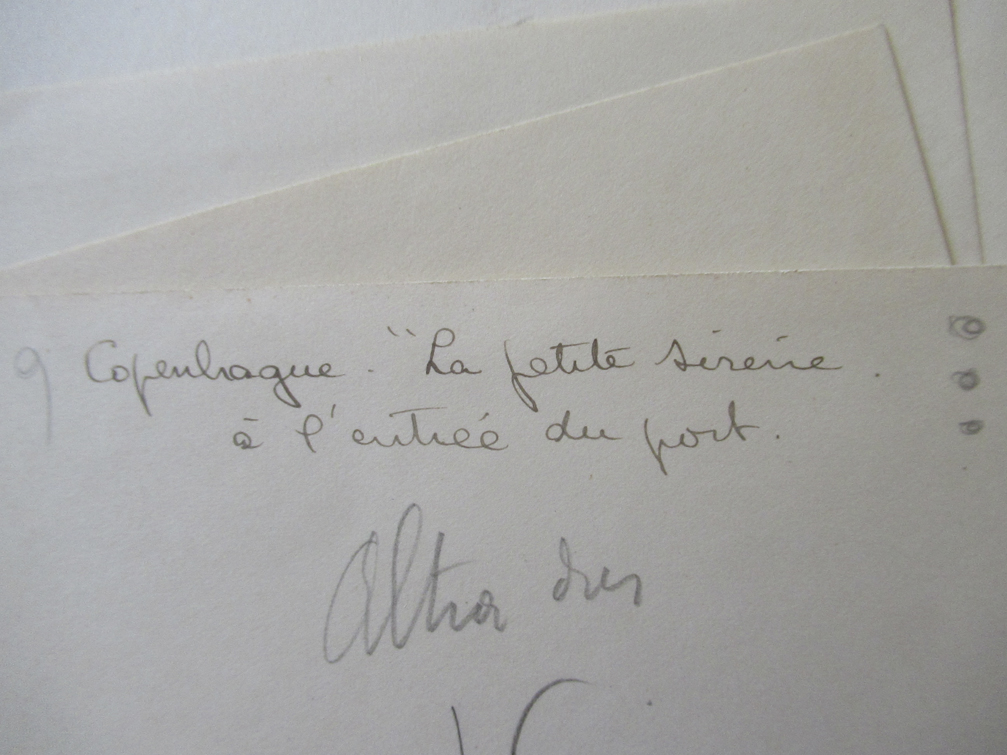 9 Copenhague. "La petite sirene.
à l'entrée du port.
Altra